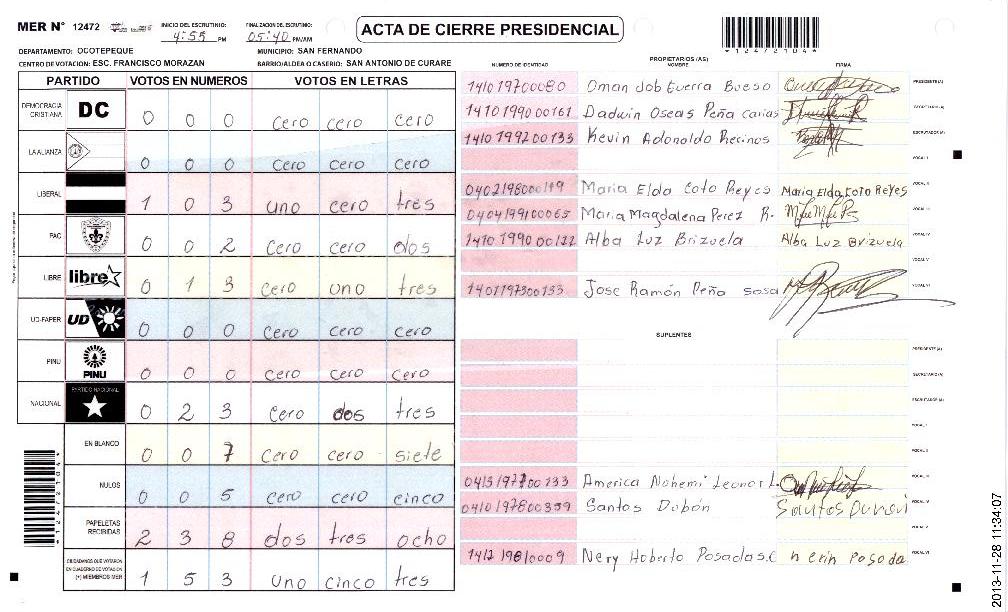 MER Nº 12472 INICIO DEL ESCRUTINIO: 4:55 PM FINALIZACION DEL ESCRUTINIO: 05:40 PM/AM ACTA DE CIERRE PRESIDENCIAL *1247204*
DEPARTAMENTO: OCOTEPEQUE MUNICIPIO: SAN FERNANDO
CENTRO DE VOTACION: ESC. FRANCISCO MORAZAN BARRIO/ALDEA O CASERIO: SAN ANTONIO DE CURARE
PARTIDO VOTOS EN NUMEROS VOTOS EN LETRAS
DEMOCRACIA CRISTIANA DC 0 0 0 cero cero cero
LA ALIANZA 0 0 0 cero cero cero
LIBERAL 1 0 3 uno cero tres
PAC 0 0 2 cero cero dos
LIBRE libre 0 1 3 cero uno tres
UD-FAPER UD 0 0 0 cero cero cero
PINU PINU 0 0 0 cero cero cero
NACIONAL PARTIDO NACIONAL 0 2 3 cero dos tres
EN BLANCO 0 0 7 cero cero siete
NULOS 0 0 5 cero cero cinco
PAPELETAS RECIBIDAS 2 3 8 dos tres ocho
CIUDADANOS QUE VOTARON EN CUADERNO DE VOTACION (+) MIEMBROS MER 1 5 3 uno cinco tres
*1247204*
PROPIETARIOS (AS)
NUMERO DE IDENTIDAD NOMBRE FIRMA
1410 1970 0080 Oman Job Guerra Bueso PRESIDENTE(A)
1410 1990 00161 Dadwin Oseas Peña Carias SECRETARIO(A)
1410 1992 00133 Kevin Adonaldo Recinos ESCRUTADOR(A)
VOCAL I
0402198000119 Maria Elda Coto Reyes Maria Elda Coto Reyes VOCAL II
0404199100065 Maria Magdalena Perez R. VOCAL III
1410 1990 00122 Alba Luz Brizuela Alba Luz Brizuela VOCAL IV
VOCAL V
1401197300133 Jose Ramón Peña sosa VOCAL VI
SUPLENTES
PRESIDENTE(A)
SECRETARIO(A)
ESCRUTADOR(A)
VOCAL I
VOCAL II
America Nohemi Leonor L. VOCAL III
0410197800359 Santos Dubón Santos Dubon VOCAL IV
VOCAL V
1412 1981 0009 Nery Hoberto Posada s.c nerin Posada VOCAL VI
2013-11-28 11:34:07